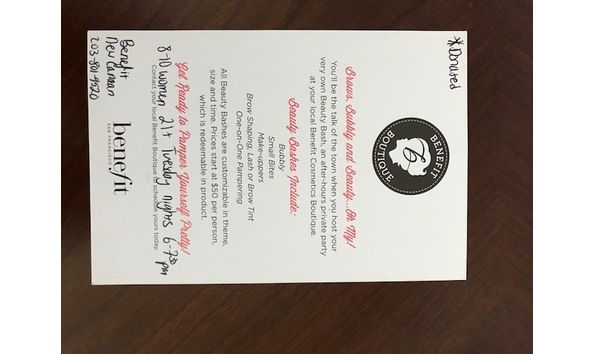 *Donated
BENEFIT
b
BOUTIQUE
Brows, Bubbly and Beauty... Oh My!
You'll be the talk of the town when you host your
very own Beauty Bash, an after-hours private party
at your local Benefit Cosmetics Boutique.
Beauty Bashes Include:
Bubbly
Small Bites
Make-uppers
One-on-One Pampering
Brow Shaping, Lash or Brow Tint
All Beauty Bashes are customizable in theme,
size and time. Prices start at $50 per person,
which is redeemable in product.
Get Ready to Pamper Yourself Pretty!
Contact your local Benefit Boutique to schedule yours today.
8-10 women 21+ Tuesday nights 6-730 pm
benefit
SAN FRANCISCO
Benefit
New Canaan
203-801-9520